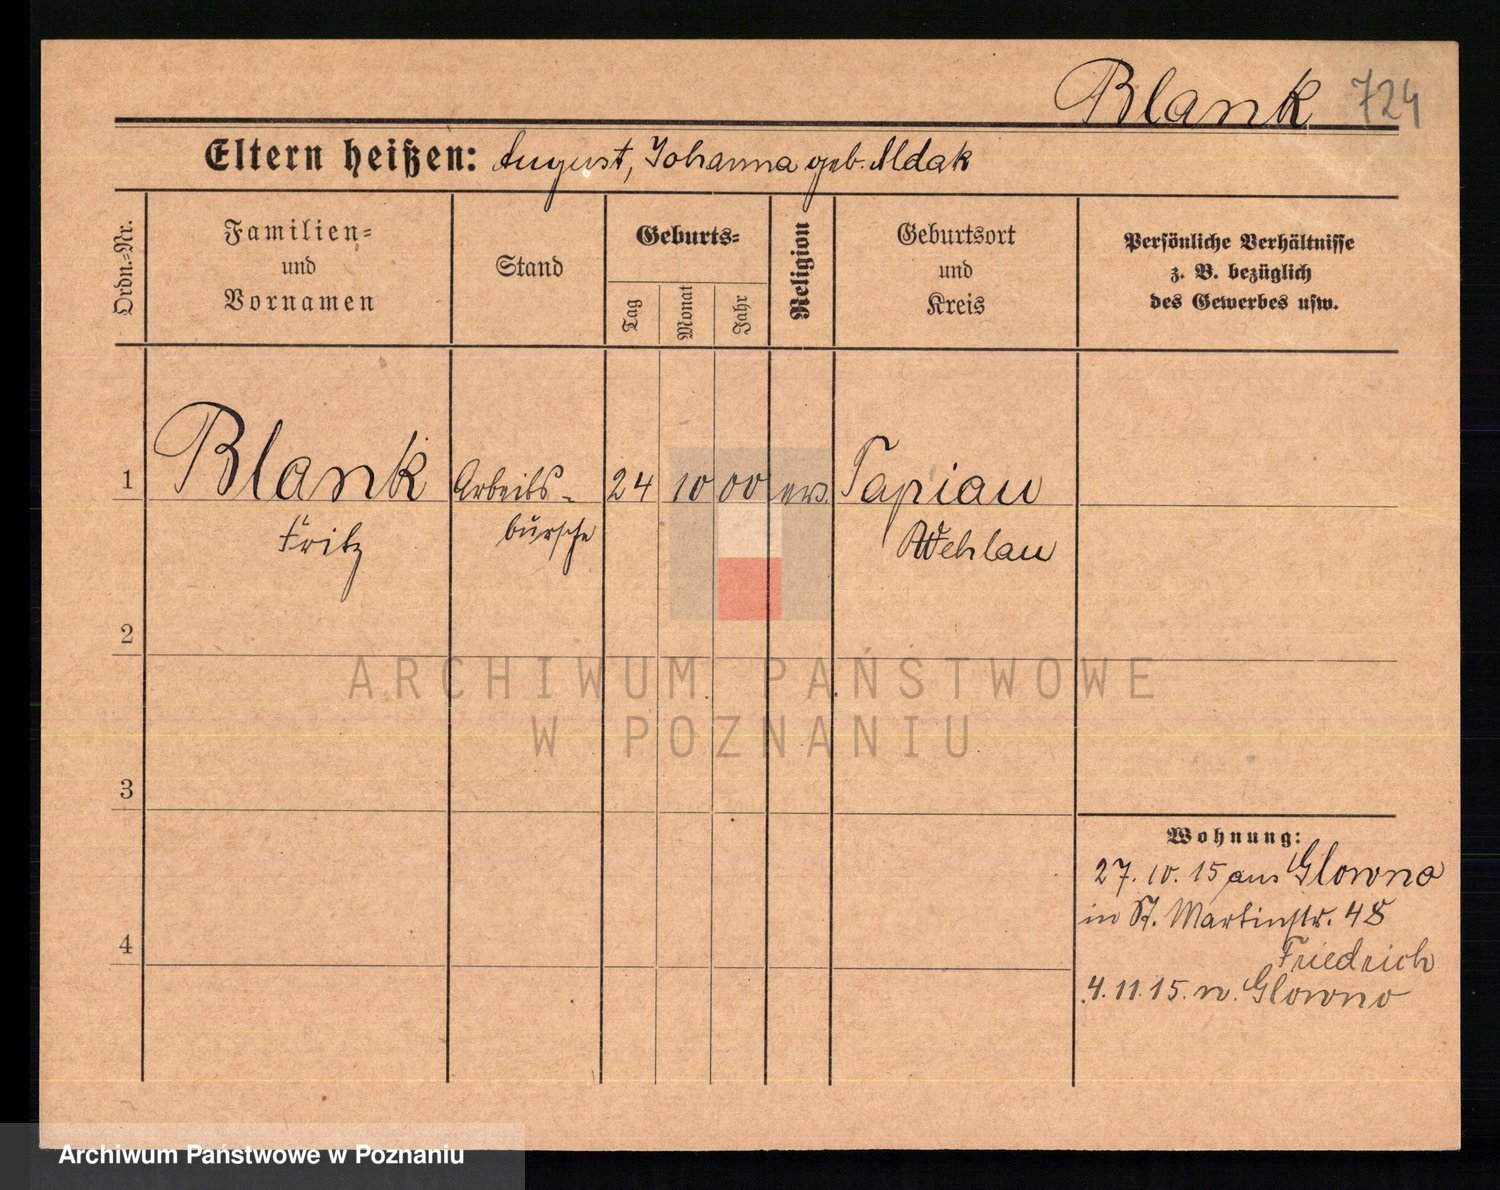 Blank 724
Eltern heißen: August, Johanna geb. Aldak
Ordn.=Nr.
Familien=
und
Vornamen
Stand
Geburts=
Tag
Monat
Jahr
Religion
Geburtsort
und
Kreis
Persönliche Verhältnisse
z. B. bezüglich
des Gewerbes usw.
1 Blank Arbeits- 24 10 00 ev. Tapiau
Fritz bursche Wehlau
2
3
4
Wohnung:
27. 10. 15 aus Glowno
in St. Martinstr. 48
Friedrich
4. 11. 15. n. Glowno
ARCHIWUM PAŃSTWOWE
W POZNANIU
Archiwum Państwowe w Poznaniu